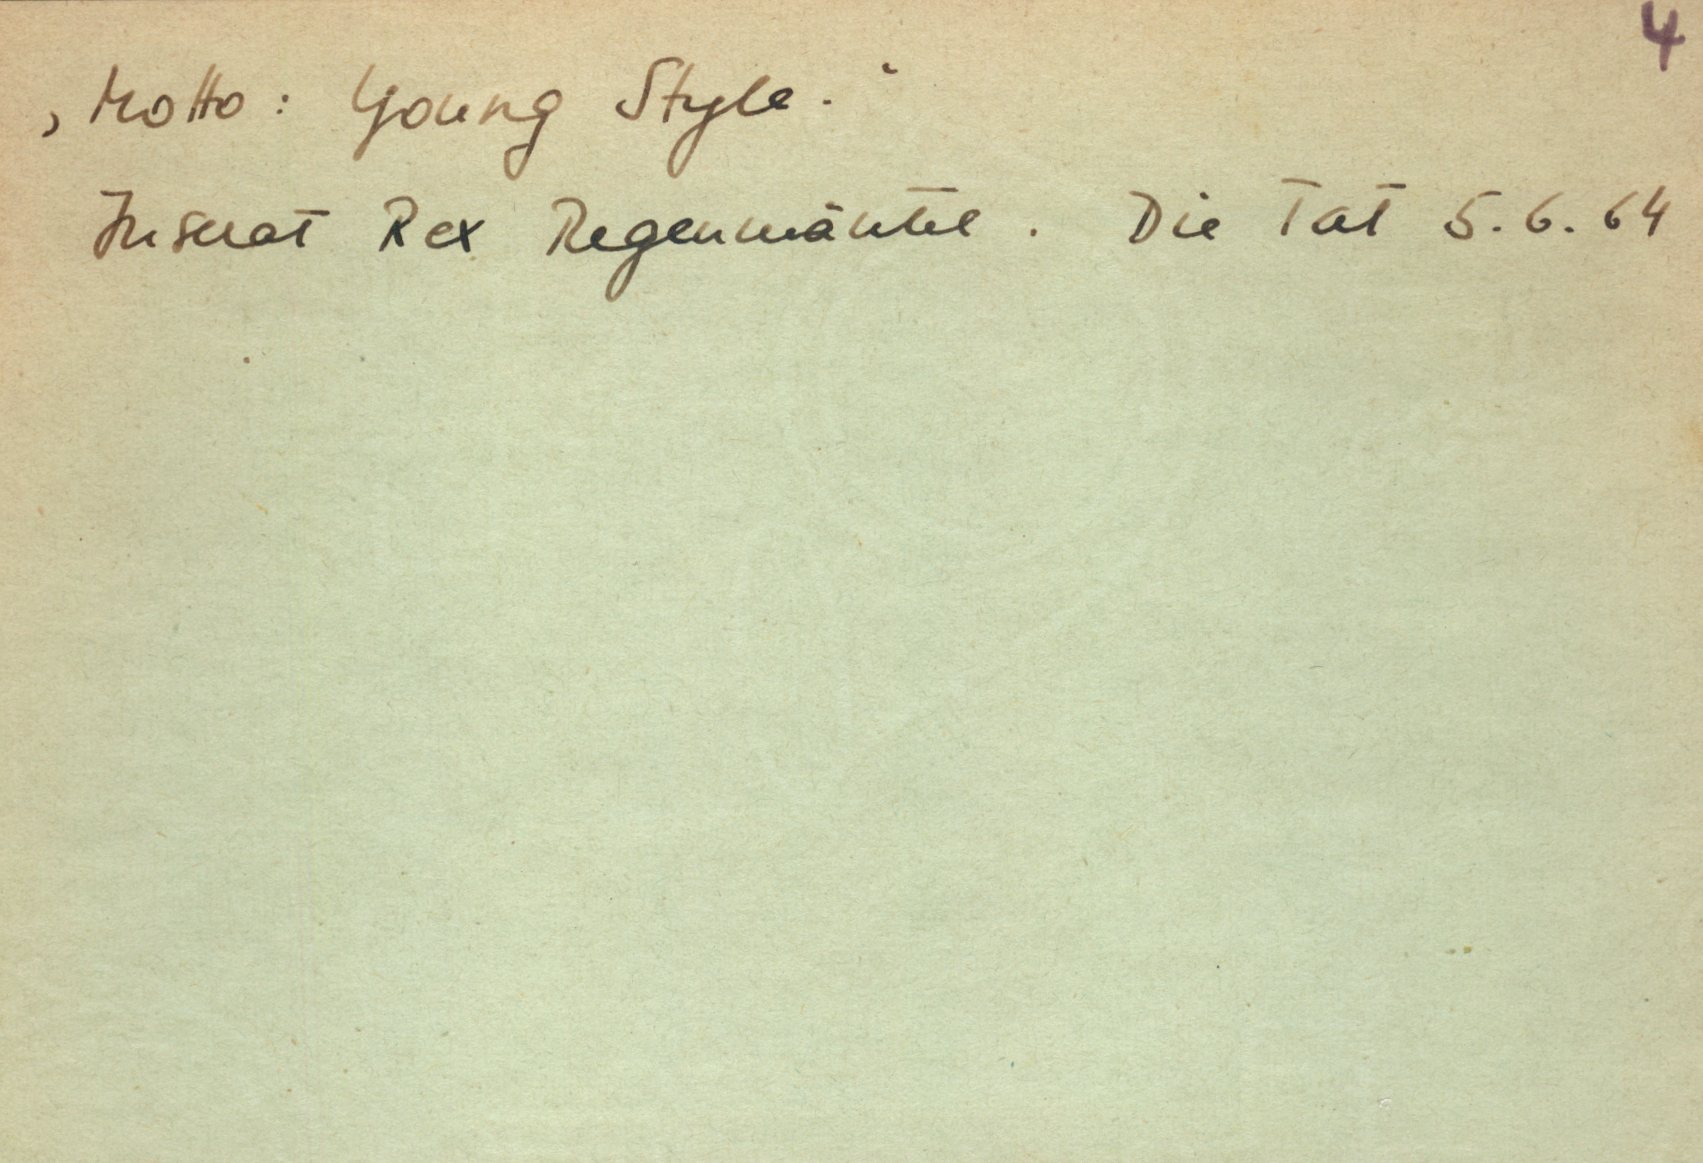 4
‚Motto: Young Style.‘
Inserat Rex Regenmäntel. Die Tat 5.6.64